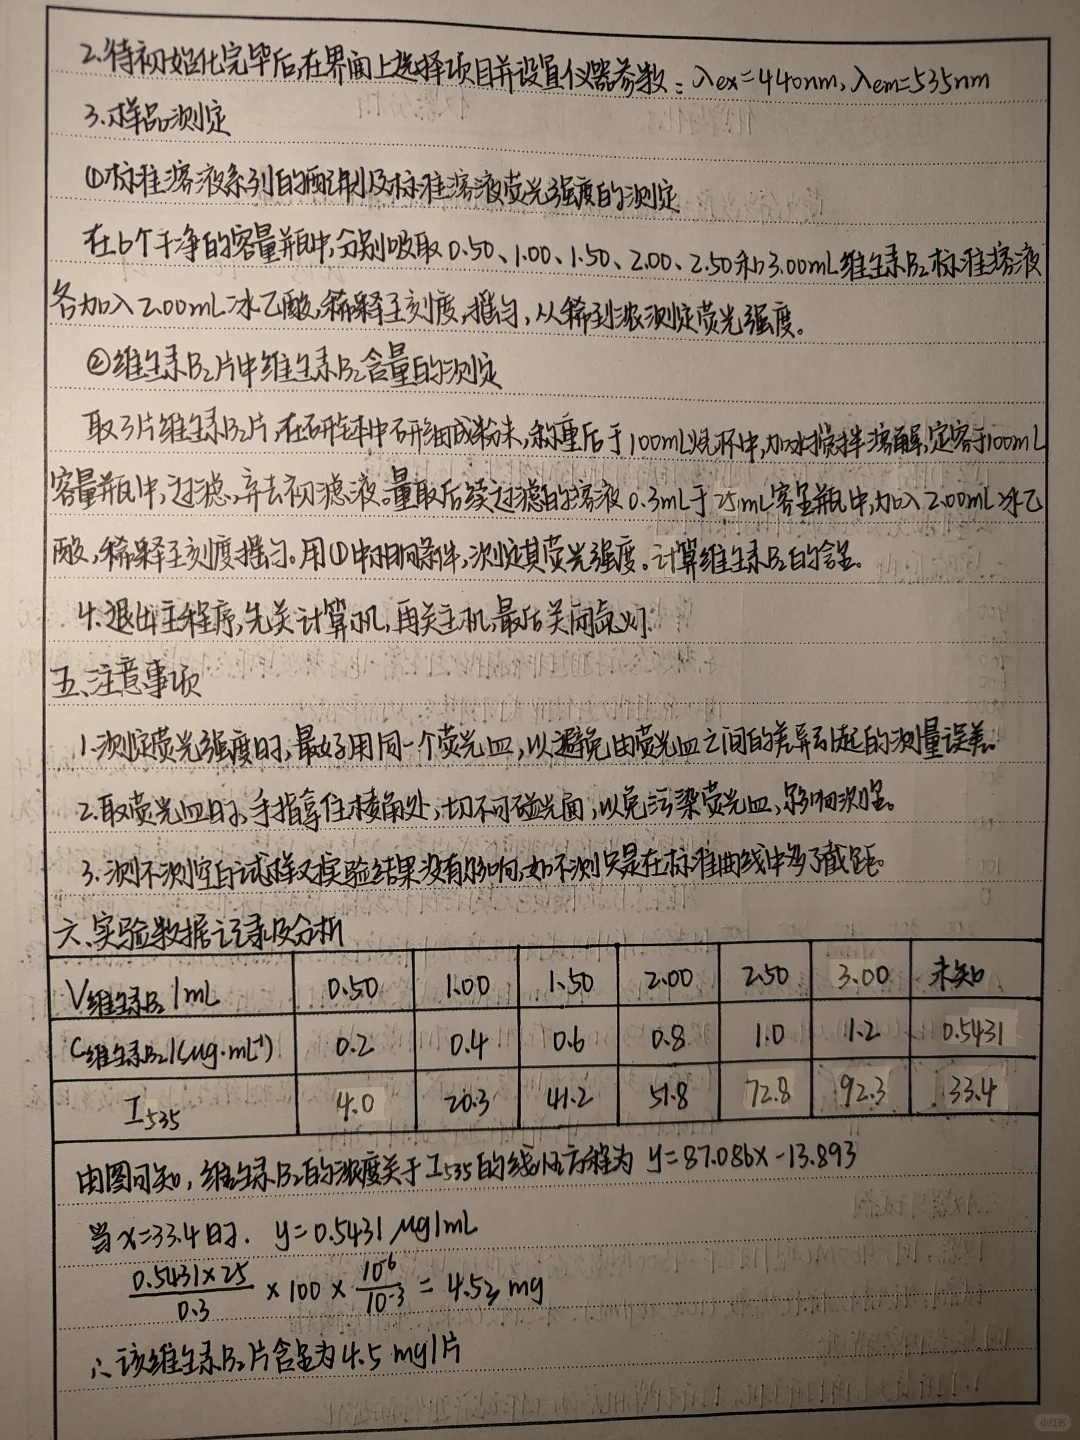 2.待初始化完毕后,在界面上选择项目并设置仪器参数:λex=440nm,λem=535nm
3.样品测定
①标准溶液系列的配制及标准溶液荧光强度的测定
在6个干净的容量瓶中,分别吸取0.50、1.00、1.50、2.00、2.50和3.00mL维生素B₂标准溶液
各加入2.00mL冰乙酸,稀释至刻度,摇匀,从稀到浓测定荧光强度。
②维生素B₂片中维生素B₂含量的测定
取3片维生素B₂片,在研钵中研细成粉末,称重后于100mL烧杯中,加水搅拌溶解,定容于100mL
容量瓶中,过滤,弃去初滤液。量取后续过滤的溶液0.3mL于25mL容量瓶中,加入2.00mL冰乙
酸,稀释至刻度摇匀。用①中相同条件,测定其荧光强度。计算维生素B₂的含量。
4.退出主程序,先关计算机,再关主机,最后关闭氙灯.
五、注意事项
1.测定荧光强度时,最好用同一个荧光皿,以避免由荧光皿之间的差异引起的测量误差。
2.取荧光皿时,手指拿住棱角处,切不可碰光面,以免污染荧光皿,影响测量。
3.测不测空白试样对实验结果没有影响,如不测只是在标准曲线中多了截距。
六、实验数据记录及分析
V维生素B₂/mL 0.50 1.00 1.50 2.00 2.50 3.00 未知
C维生素B₂/(μg·mL⁻¹) 0.2 0.4 0.6 0.8 1.0 1.2 0.5431
I₅₃₅ 4.0 20.3 41.2 51.8 72.8 92.3 33.4
由图可知,维生素B₂的浓度关于I₅₃₅的线性方程为 y=87.086x-13.893
当x=33.4时. y=0.5431μg/mL
0.5431×25/0.3 ×100× 10⁻⁶/10⁻³ = 4.53 mg
∴该维生素B₂片含量为4.5mg/片
小红书